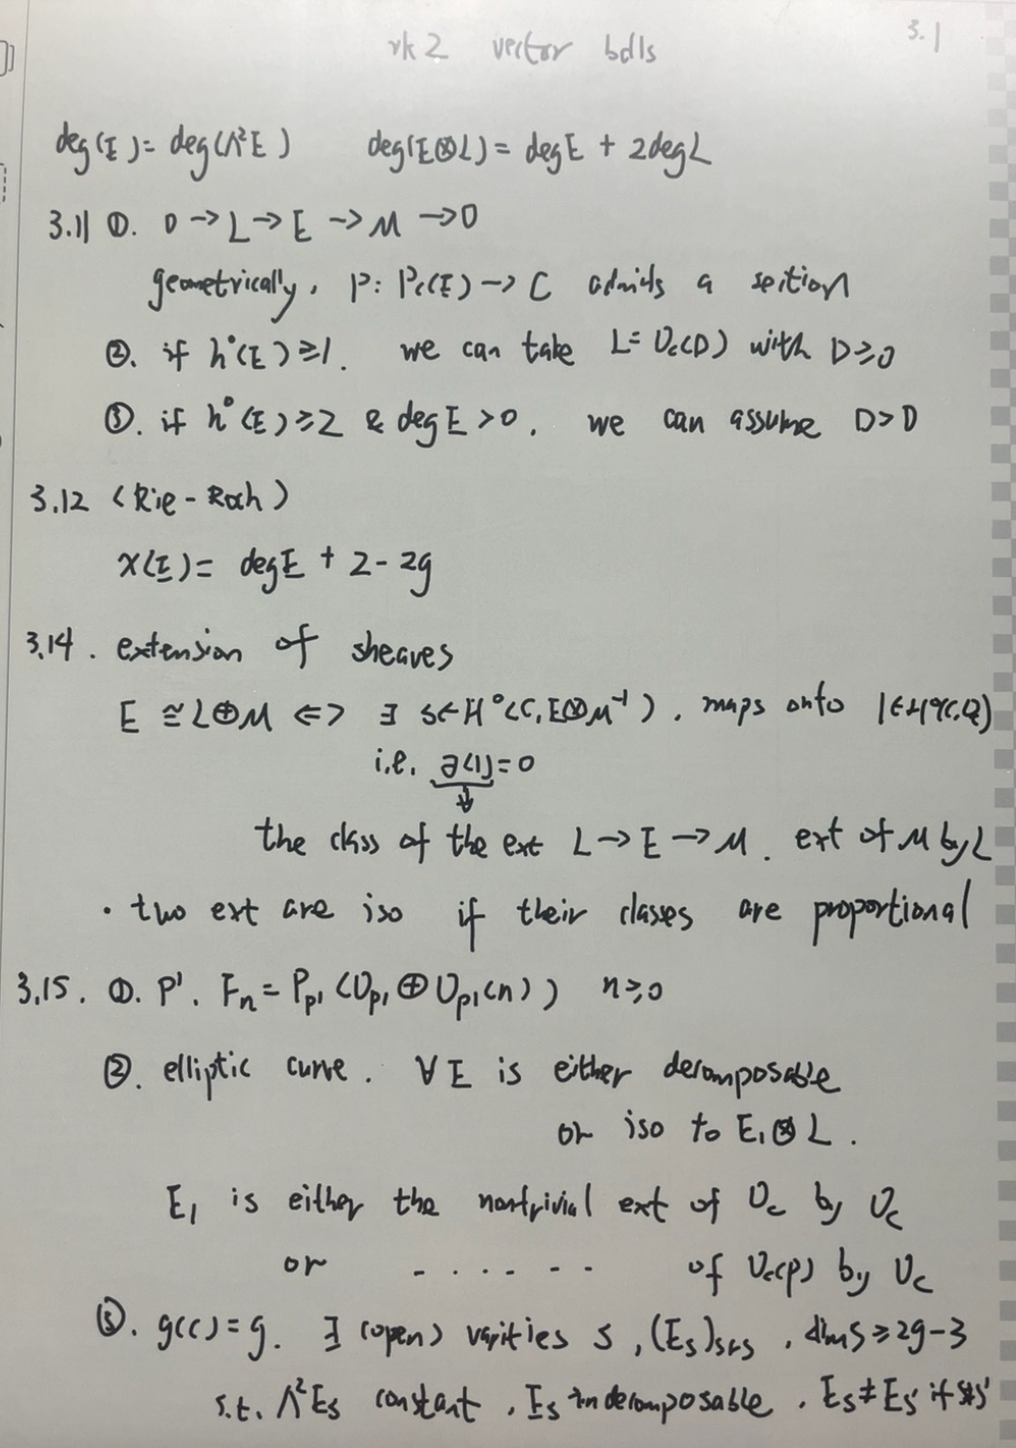 rk 2 vector bdls
3.1
deg(E) = deg(Λ²E) deg(E⊗L) = deg E + 2deg L
3.11 ①. 0 → L → E → M → 0
geometrically, p: P_C(E) → C admits a section
②. if h°(E) ≥ 1. we can take L = O_C(D) with D ≥ 0
③. if h°(E) ≥ 2 & deg E > 0. we can assume D > 0
3.12 (Rie - Roch)
χ(E) = deg E + 2 - 2g
3.14. extension of sheaves
E ≅ L⊕M <=> ∃ s∈H°(C, E⊗M⁻¹), maps onto 1∈H°(C,O_C)
i.e. ∂(1) = 0
the class of the ext L → E → M. ext of M by L
· two ext are iso if their classes are proportional
3.15. ①. P¹. F_n = P_P¹ (O_P¹ ⊕ O_P¹(n)) n ≥ 0
②. elliptic curve. ∀ E is either decomposable
or iso to E₁ ⊗ L.
E₁ is either the nontrivial ext of O_C by O_C
or - - - - - - of O_C(p) by O_C
③. g(C) = g. ∃ (open) varities S, (E_s)_{s∈S}, dim S ≥ 2g-3
s.t. Λ²E_s constant, E_s indecomposable, E_s ≠ E_s' if s≠s'